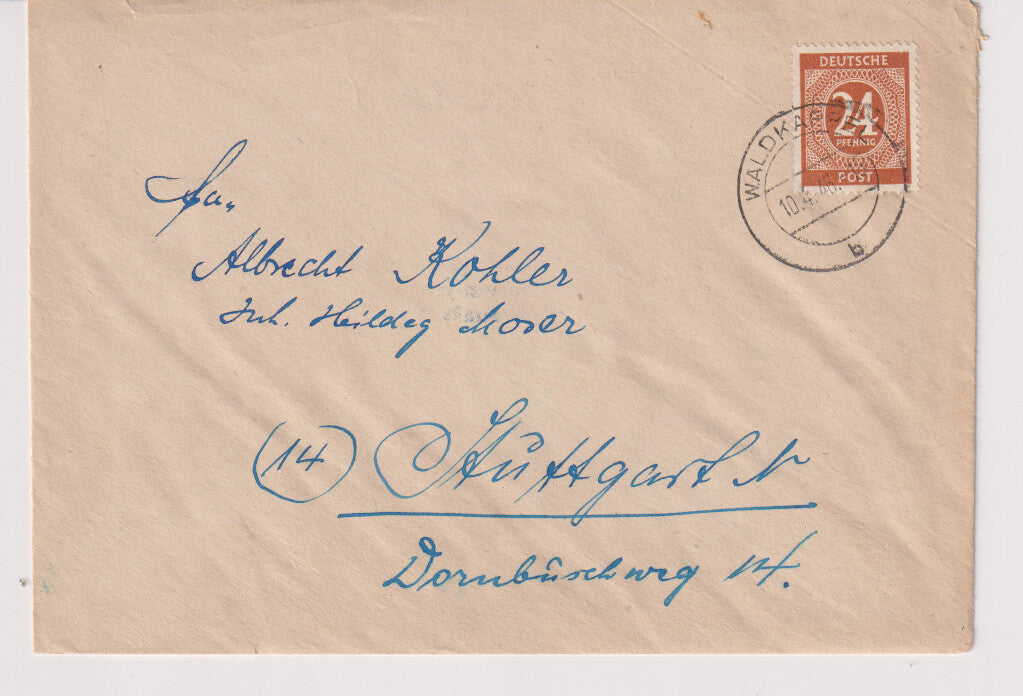 DEUTSCHE
24
PFENNIG
POST
WALDKA
10.4.46.
b
Fa.,
Albrecht Kohler
Inh. Heildeg Moser
(14) Stuttgart N
Dornbüschweg 14.